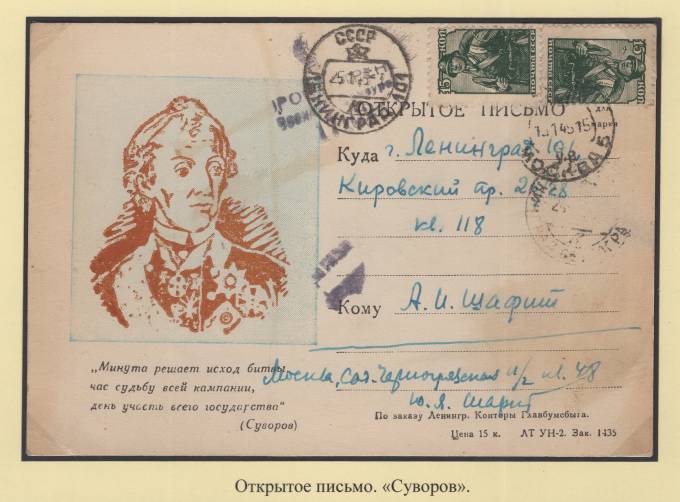 СССР
ЛЕНИНГРАД
15 ПОЧТА СССР КОП
15 ПОЧТА СССР КОП
ОТКРЫТОЕ ПИСЬМО
для
марки
МОСКВА 5
Куда г. Ленинград 101
Кировский пр. 26/28
кв. 118
Кому А. И. Шафит
„Минута решает исход битвы,
час судьбу всей кампании,
день участь всего государства“
(Суворов)
Москва, Сад. Черногрязская кв. 48
По заказу Ленингр. Конторы Главбумсбыта.
Цена 15 к. ЛТ УН-2. Зак. 1435
Открытое письмо. «Суворов».